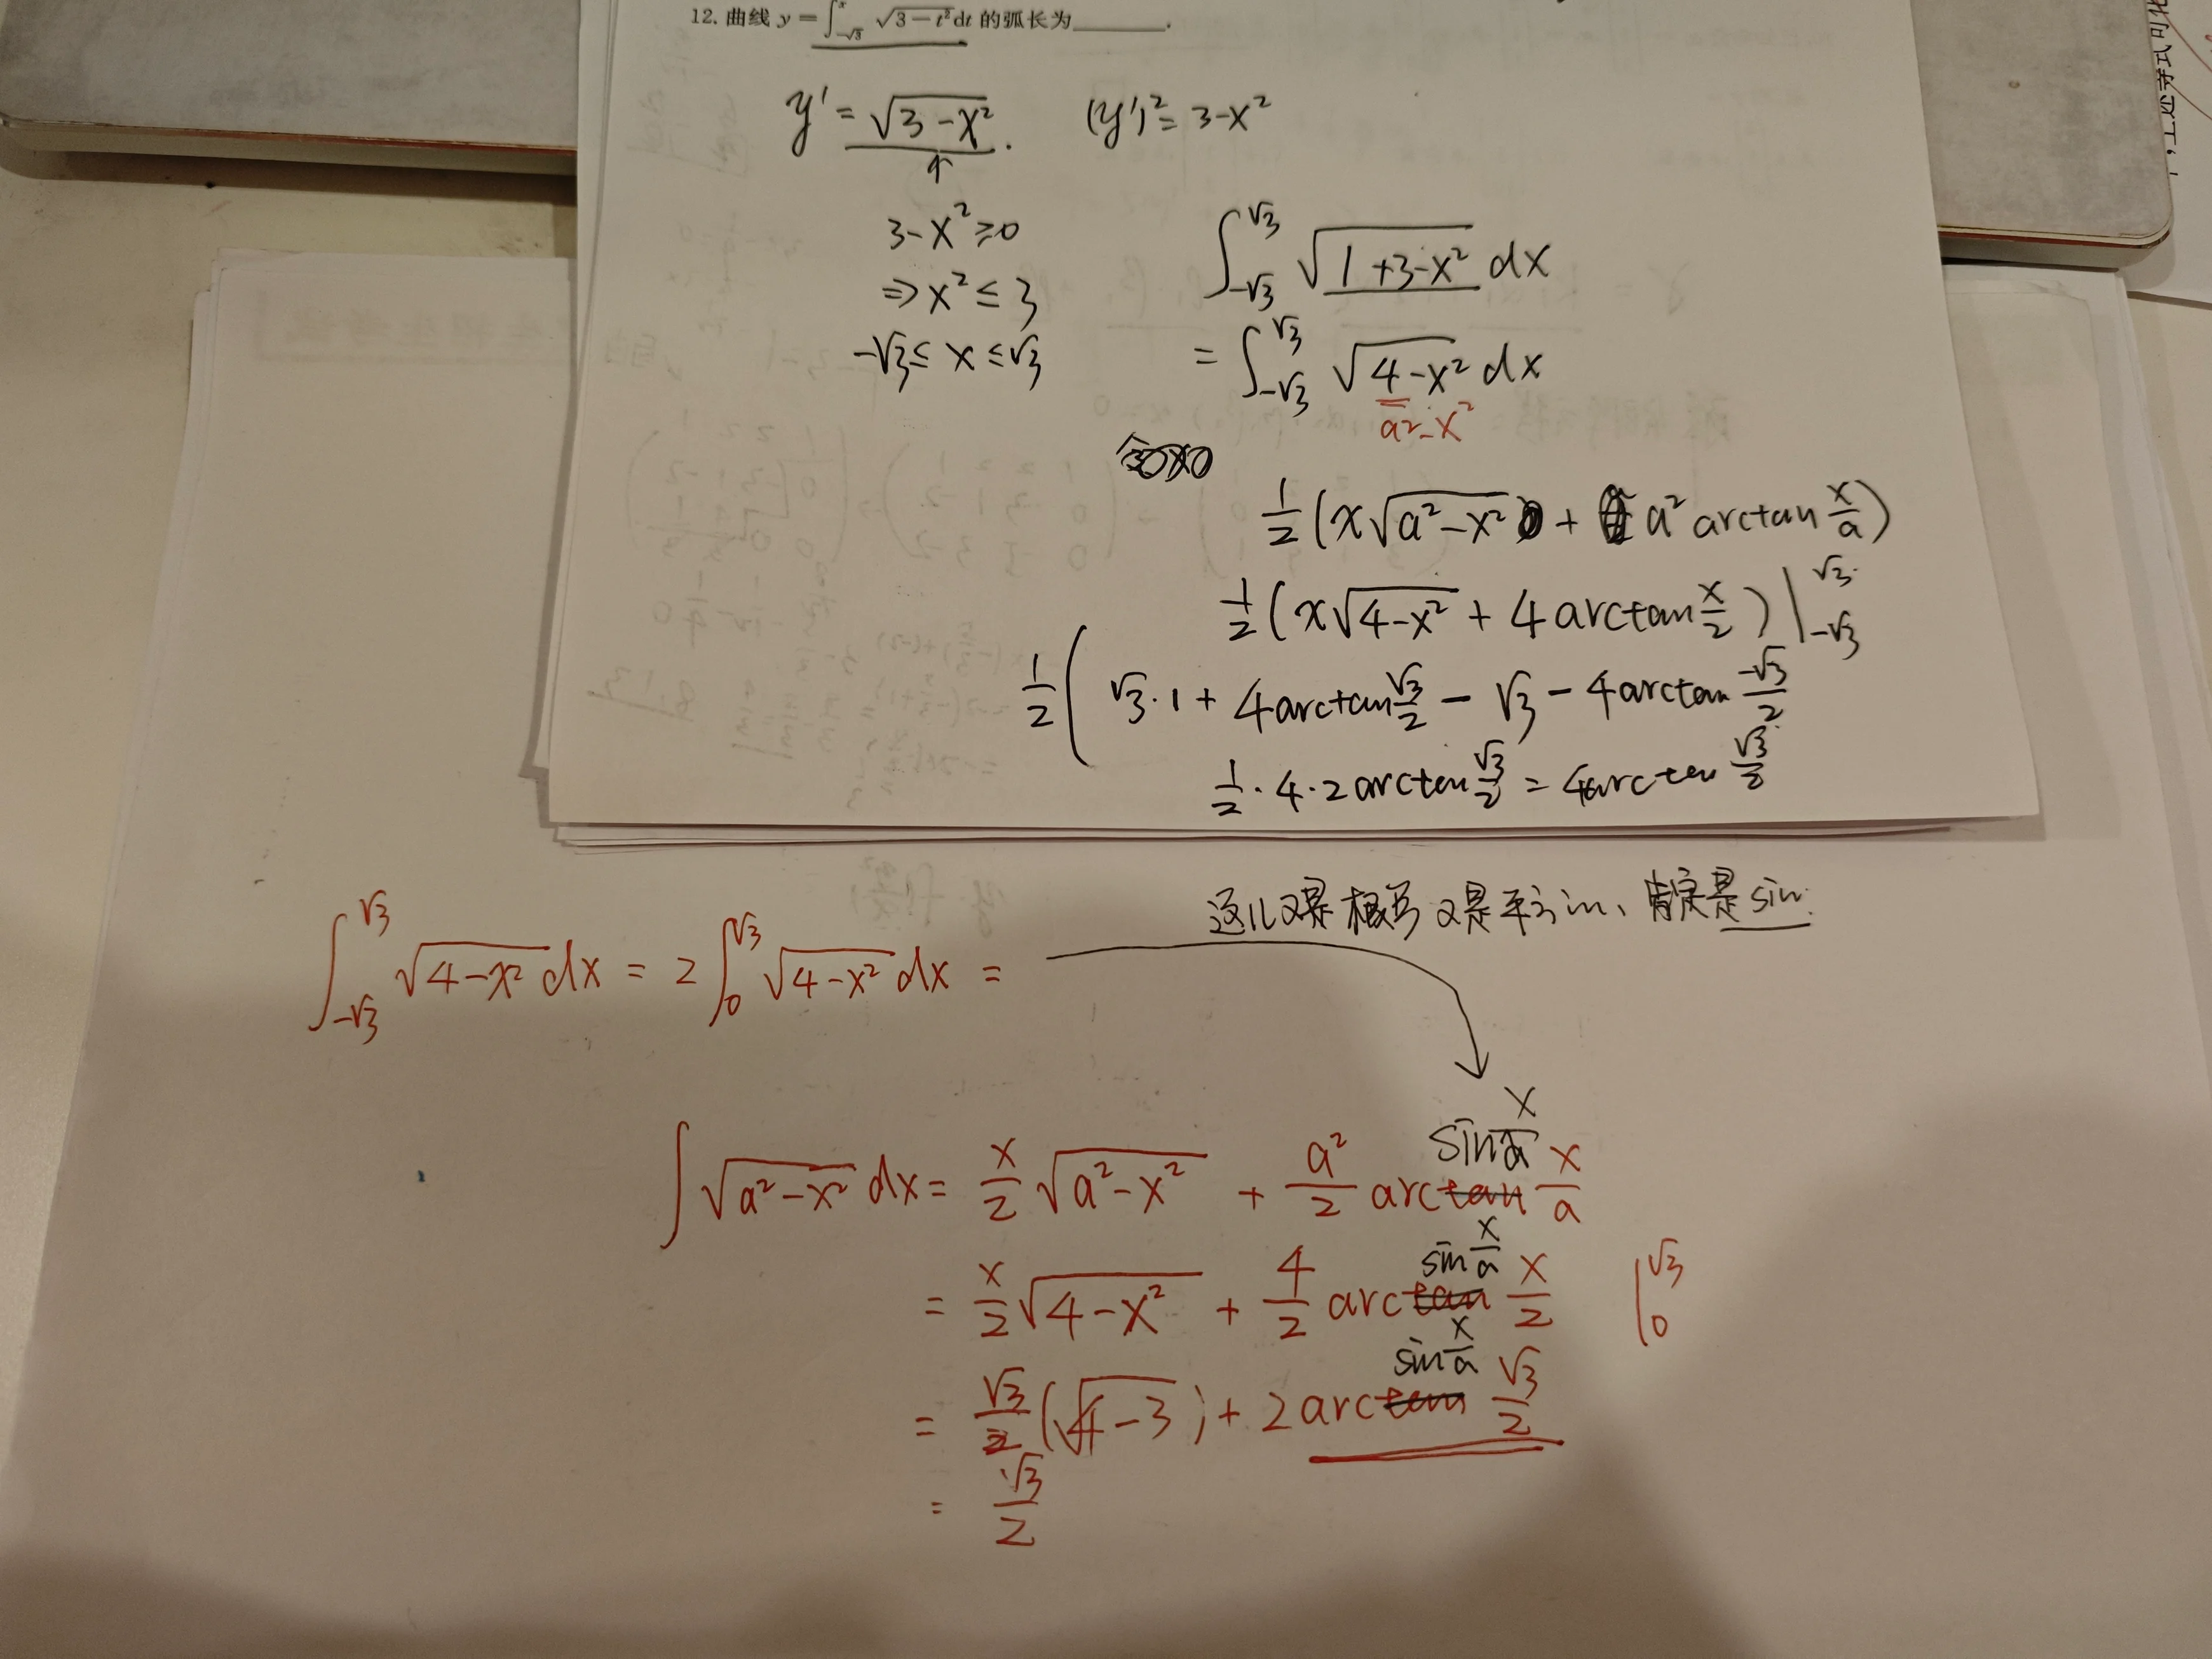 12. 曲线 y = ∫_{-√3}^{x} √(3-t²) dt 的弧长为________.
y' = √(3-x²). (y')² = 3-x²
3-x² ≥ 0
⇒ x² ≤ 3
-√3 ≤ x ≤ √3
∫_{-√3}^{√3} √(1+3-x²) dx
= ∫_{-√3}^{√3} √(4-x²) dx
a²-x²
1/2 (x√(a²-x²) + a² arctan x/a)
1/2 (x√(4-x²) + 4 arctan x/2) |_{-√3}^{√3}
1/2 ( √3·1 + 4arctan √3/2 - √3 - 4arctan -√3/2
1/2 · 4 · 2 arctan √3/2 = 4arctan √3/2
这儿又是根号又是平方in、肯定是sin.
∫_{-√3}^{√3} √(4-x²) dx = 2∫_{0}^{√3} √(4-x²) dx =
sin x/a
∫ √(a²-x²) dx = x/2 √(a²-x²) + a²/2 arctan x/a
sin x/a
= x/2 √(4-x²) + 4/2 arctan x/2 |_{0}^{√3}
sin x/a
= √3/2 (√(4-3)) + 2 arctan √3/2
= √3/2